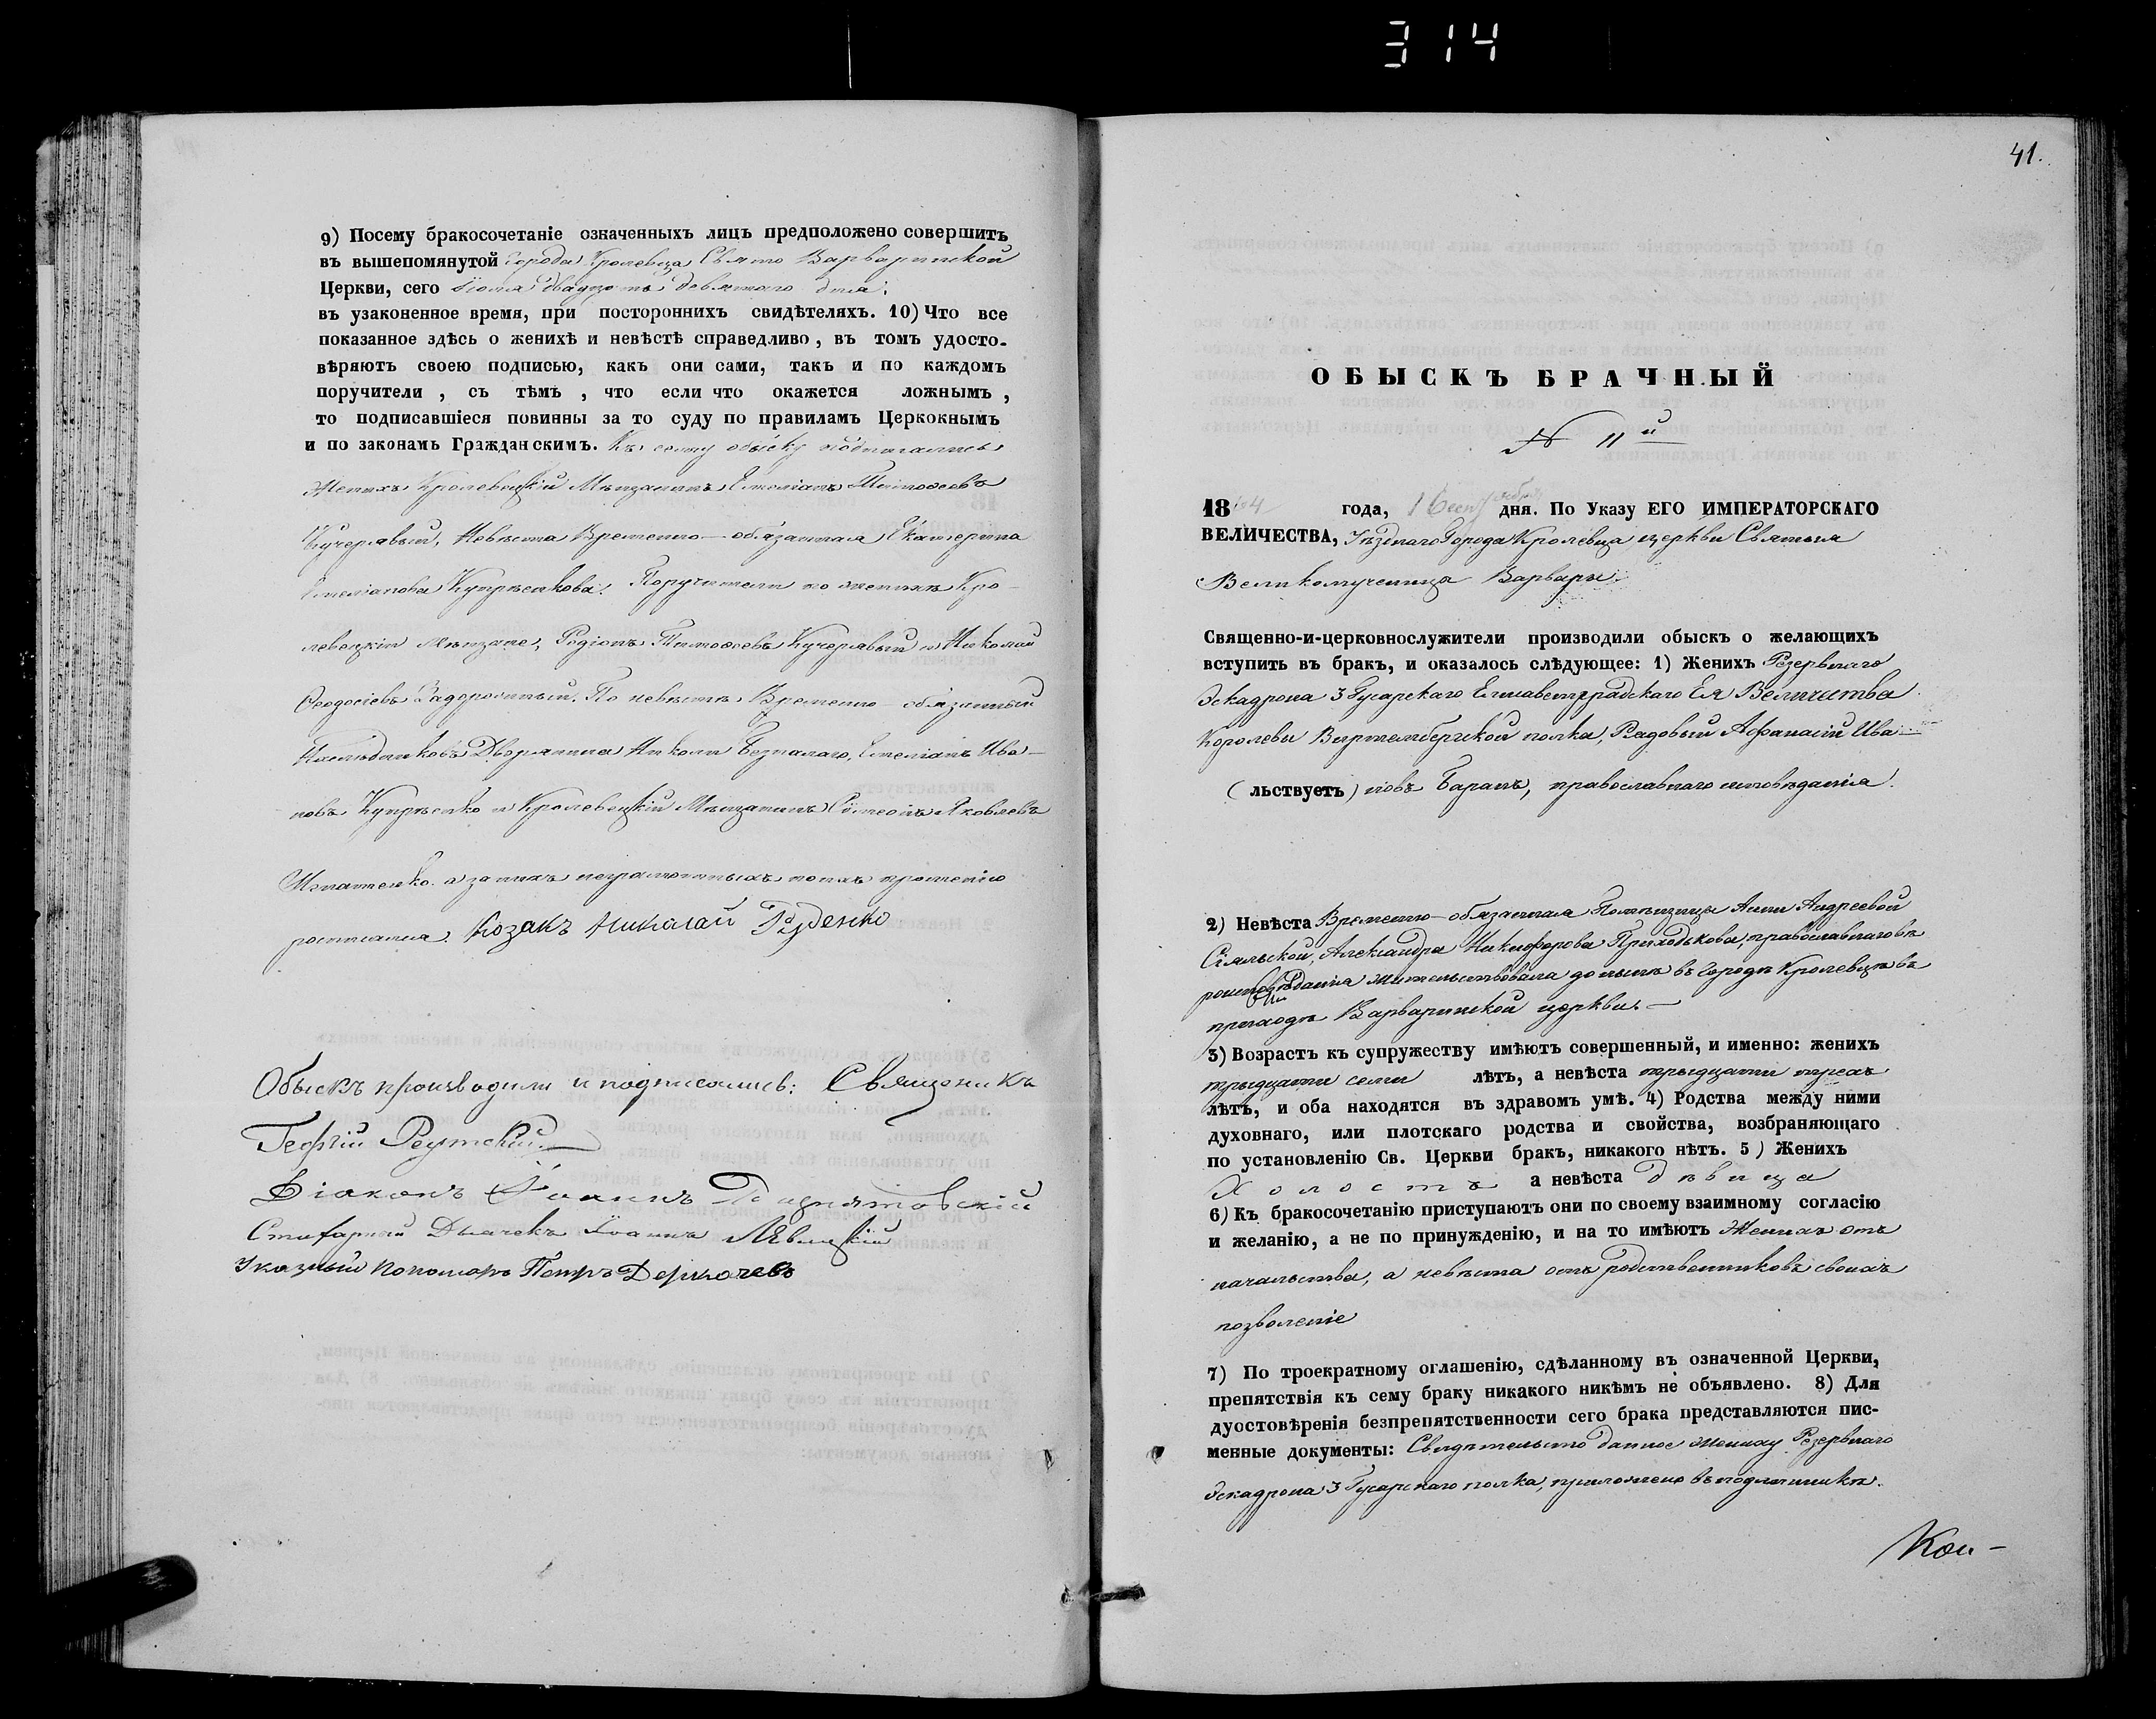 314
9) Посему бракосочетаніе означенныхъ лицъ предположено совершить
въ вышепомянутой города Кролевца Свято Варваринской
Церкви, сего Іюля двадцать девятаго дня;
въ узаконенное время, при постороннихъ свидѣтеляхъ. 10) Что все
показанное здѣсь о женихѣ и невѣстѣ справедливо, въ томъ удосто-
вѣряютъ своею подписью, какъ они сами, такъ и по каждомъ
поручители, съ тѣмъ, что если что окажется ложнымъ,
то подписавшіеся повинны за то суду по правиламъ Церкокнымъ
и по законамъ Гражданскимъ. Къ сему обыску подписались
Женихъ Кролевецкій Мѣщанинъ Емеліанъ Тимоѳеевъ
Кучерявый, Невѣста Временно-обязанная Екатерина
Емеліанова Купрѣенкова. Поручители по женихѣ Кро-
левецкіи мѣщане, Родіонъ Тимоѳеевъ Кучерявый и Николай
Ѳеодосіевъ Задорожный. По невѣстѣ Временно-обязанный
Наслѣдниковъ Дворянина Николы Безпалаго, Емеліанъ Ива-
новъ Купрѣенко и Кролевецкій Мѣщанинъ Сѵмеонъ Яковлевъ
Игнатенко. а за нихъ неграмотныхъ по ихъ прошенію
росписался. Козакъ Николай Руденко
Обыскъ производили и подписались: Священикъ
Георгій Реутскій
Діаконъ Іоаннъ
Стихарный Дьячекъ Іоаннъ Левицкій
Указный Пономарь Петръ Деркачевъ
41.
ОБЫСКЪ БРАЧНЫЙ
N 11й
1864 года, 1 Сентября дня. По Указу ЕГО ИМПЕРАТОРСКАГО
ВЕЛИЧЕСТВА, Уѣзднаго Города Кролевца церкви Святыя
Великомученица Варвары.
Священно-и-церковнослужители производили обыскъ о желающихъ
вступить въ бракъ, и оказалось слѣдующее: 1) Женихъ Резервнаго
Эскадрона 3 Гусарскаго Елисаветградскаго Ея Величества
Королевы Виртембергской полка, Рядовый Афанасій Ива-
(льствуетъ) новъ Баранъ, православнаго исповѣданія.
2) Невѣста Временно-обязанная Помѣщицы Анны Андреевой
Сіяльской, Александра Никифорова Приходькова, православнаго вѣ
роисповѣданія жительствовала до нынѣ въ Городѣ Кролевцѣ въ
приходѣ Варваринской церкви.-
3) Возрастъ къ супружеству имѣютъ совершенный, и именно: женихъ
тридцати семи лѣтъ, а невѣста тридцати трехъ
лѣтъ, и оба находятся въ здравомъ умѣ. 4) Родства между ними
духовнаго, или плотскаго родства и свойства, возбраняющаго
по установленію Св. Церкви бракъ, никакого нѣтъ. 5) Женихъ
Холостъ а невѣста дѣвица
6) Къ бракосочетанію приступаютъ они по своему взаимному согласію
и желанію, а не по принужденію, и на то имѣютъ Женихъ отъ
начальства, а невѣста отъ родственниковъ своихъ
позволеніе
7) По троекратному оглашенію, сдѣланному въ означенной Церкви,
препятствія къ сему браку никакого никѣмъ не объявлено. 8) Для
дуостовѣренія безпрепятственности сего брака представляются пис-
менные документы: Свидѣтельсто данное жениху Резервнаго
Эскадрона 3 Гусарскаго полка, приложено въ подлинникѣ.
Кои-